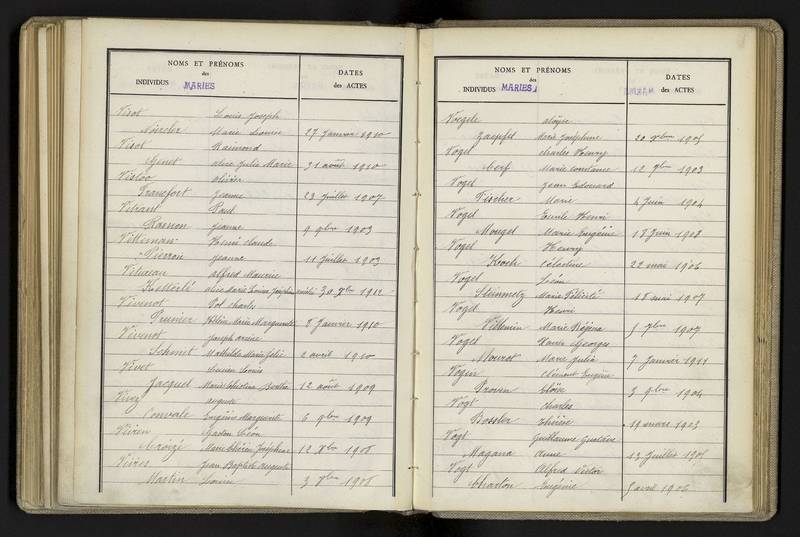 NOMS ET PRÉNOMS
des
INDIVIDUS MARIES
DATES
des ACTES
Visot Louis Joseph
Marie Louise 27 Janvier 1910
Visot Raimond
Genet alice Julie Marie 31 août 1910
olivier
Transfort Jeanne 23 Juillet 1907
Vitrant Paul
Rasson Jeanne 9 9bre 1903
Henri claude
Pierron Jeanne 11 Juillet 1903
alfred Maurice
alice Marie Louise Joséphine 1912
Vivenot Pol charles
Prunier Hélène Marie Marguerite 8 Janvier 1910
Vivenot Joseph
Schmit Mathilde Marie 2 avril 1910
Vivet Lucien Louis
Jacquel Marie Christine Bertha 12 août 1909
Vivez auguste
Convale Eugénie Marguerite 6 9bre 1909
Gaston Léon
Marie thérèse Joséphine
Jean Baptiste auguste
Martin Louise
NOMS ET PRÉNOMS
des
INDIVIDUS MARIES
DATES
des ACTES
Voegele aloïse
Zaepfel Marie Joséphine
Vogel charles Henry
Cerf Marie constance 12 9bre 1903
Vogel Jean Edouard
Fischer Marie 4 Juin 1904
Vogel Emile Henri
Mougel Marie Eugénie 18 Juin 1908
Vogel Henry
Kroch Célestine 22 mai 1906
Vogel Léon
Steinmetz Marie Félicité 18 mai 1907
Vogel Henri
Villemin Marie Régina 1907
Vogel Xavier Georges
Mourot Marie Julia 7 Janvier 1911
Vogin Clément Eugène
Proven 3 9bre 1904
Vogt charles
Bossler thérèse 19 mars 1903
Vogt Guillaume
Magana Anne 13 Juillet
Vogt Alfred Victor
Charton Eugénie 5 avril 1906